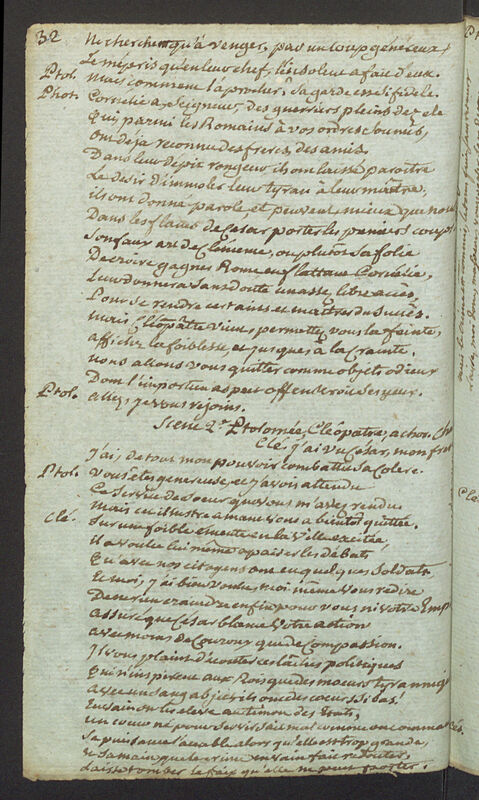 32
Ne cherchent qu'à venger, par un coup généreux,
Le mépris qu'en leur chef, l'insolent a fait d'eux.
Ptol. Mais comment l'aprocher, sa garde est si fidele
Phot. Cornélie a, Seigneur, des guerriers pleins de zèle
Qui, parmi les Romains à vos ordres soumis,
Ont déja reconnu des freres, des amis.
Dans leur dépit rongeur ils ont laissé paroître
Le desir d'immoler leur tyran à leur maître,
ils ont donné parole, et peuvent, mieux que nous
Dans les flancs de Cesar porter les premiers coups
Son faux art de Clemence, ou plutôt sa folie
De croire gagner Rome en flattant Cornélie,
Leur donnera sans doute un assez libre accès
Pour se rendre certains et maîtres du succès.
Mais Cléopâtre vient, permettez vous la feinte,
affichez la foiblesse, et jusques à la Crainte.
nous allons vous quitter comme objets odieux
Dont l'importun aspect offenseroit ses yeux.
Ptol. allez, je vous rejoins.
Scene 2e Ptolomée, Cléopâtre, achor.
Clé. j'ai vu César, mon frere
J'ai, de tout mon pouvoir combattu sa Colere.
Ptol. Vous êtes genereuse, et j'avois attendu
Ce service de soeur que vous m'avez rendu
Mais cet illustre amant vous a bientôt quittée.
Clé. Sur une foible émeute en la Ville excitée,
il a voulu lui même appaiser les débats
Qu'avec nos citoyens ont eu quelques soldats.
Et moi, j'ai bien voulu, moi même vous redire
De ne rien craindre enfin pour vous ni votre Emp
assuré que Cesar blame votre action
avec moins de Courroux que de Compassion.
Il vous plaint d'écouter ces lâches politiques
Qui n'inspirent aux Rois que des moeurs tyranniq
avec un sang abject ils ont des coeurs si bas!
En vain on les éleve au timon des Etats,
un coeur né pour servir sait mal comme on commande
Sa puissance l'accable alors qu'elle est trop grande,
et sa main que le crime en vain fait redouter,
Laisse tomber le faix qu'elle ne peut porter.